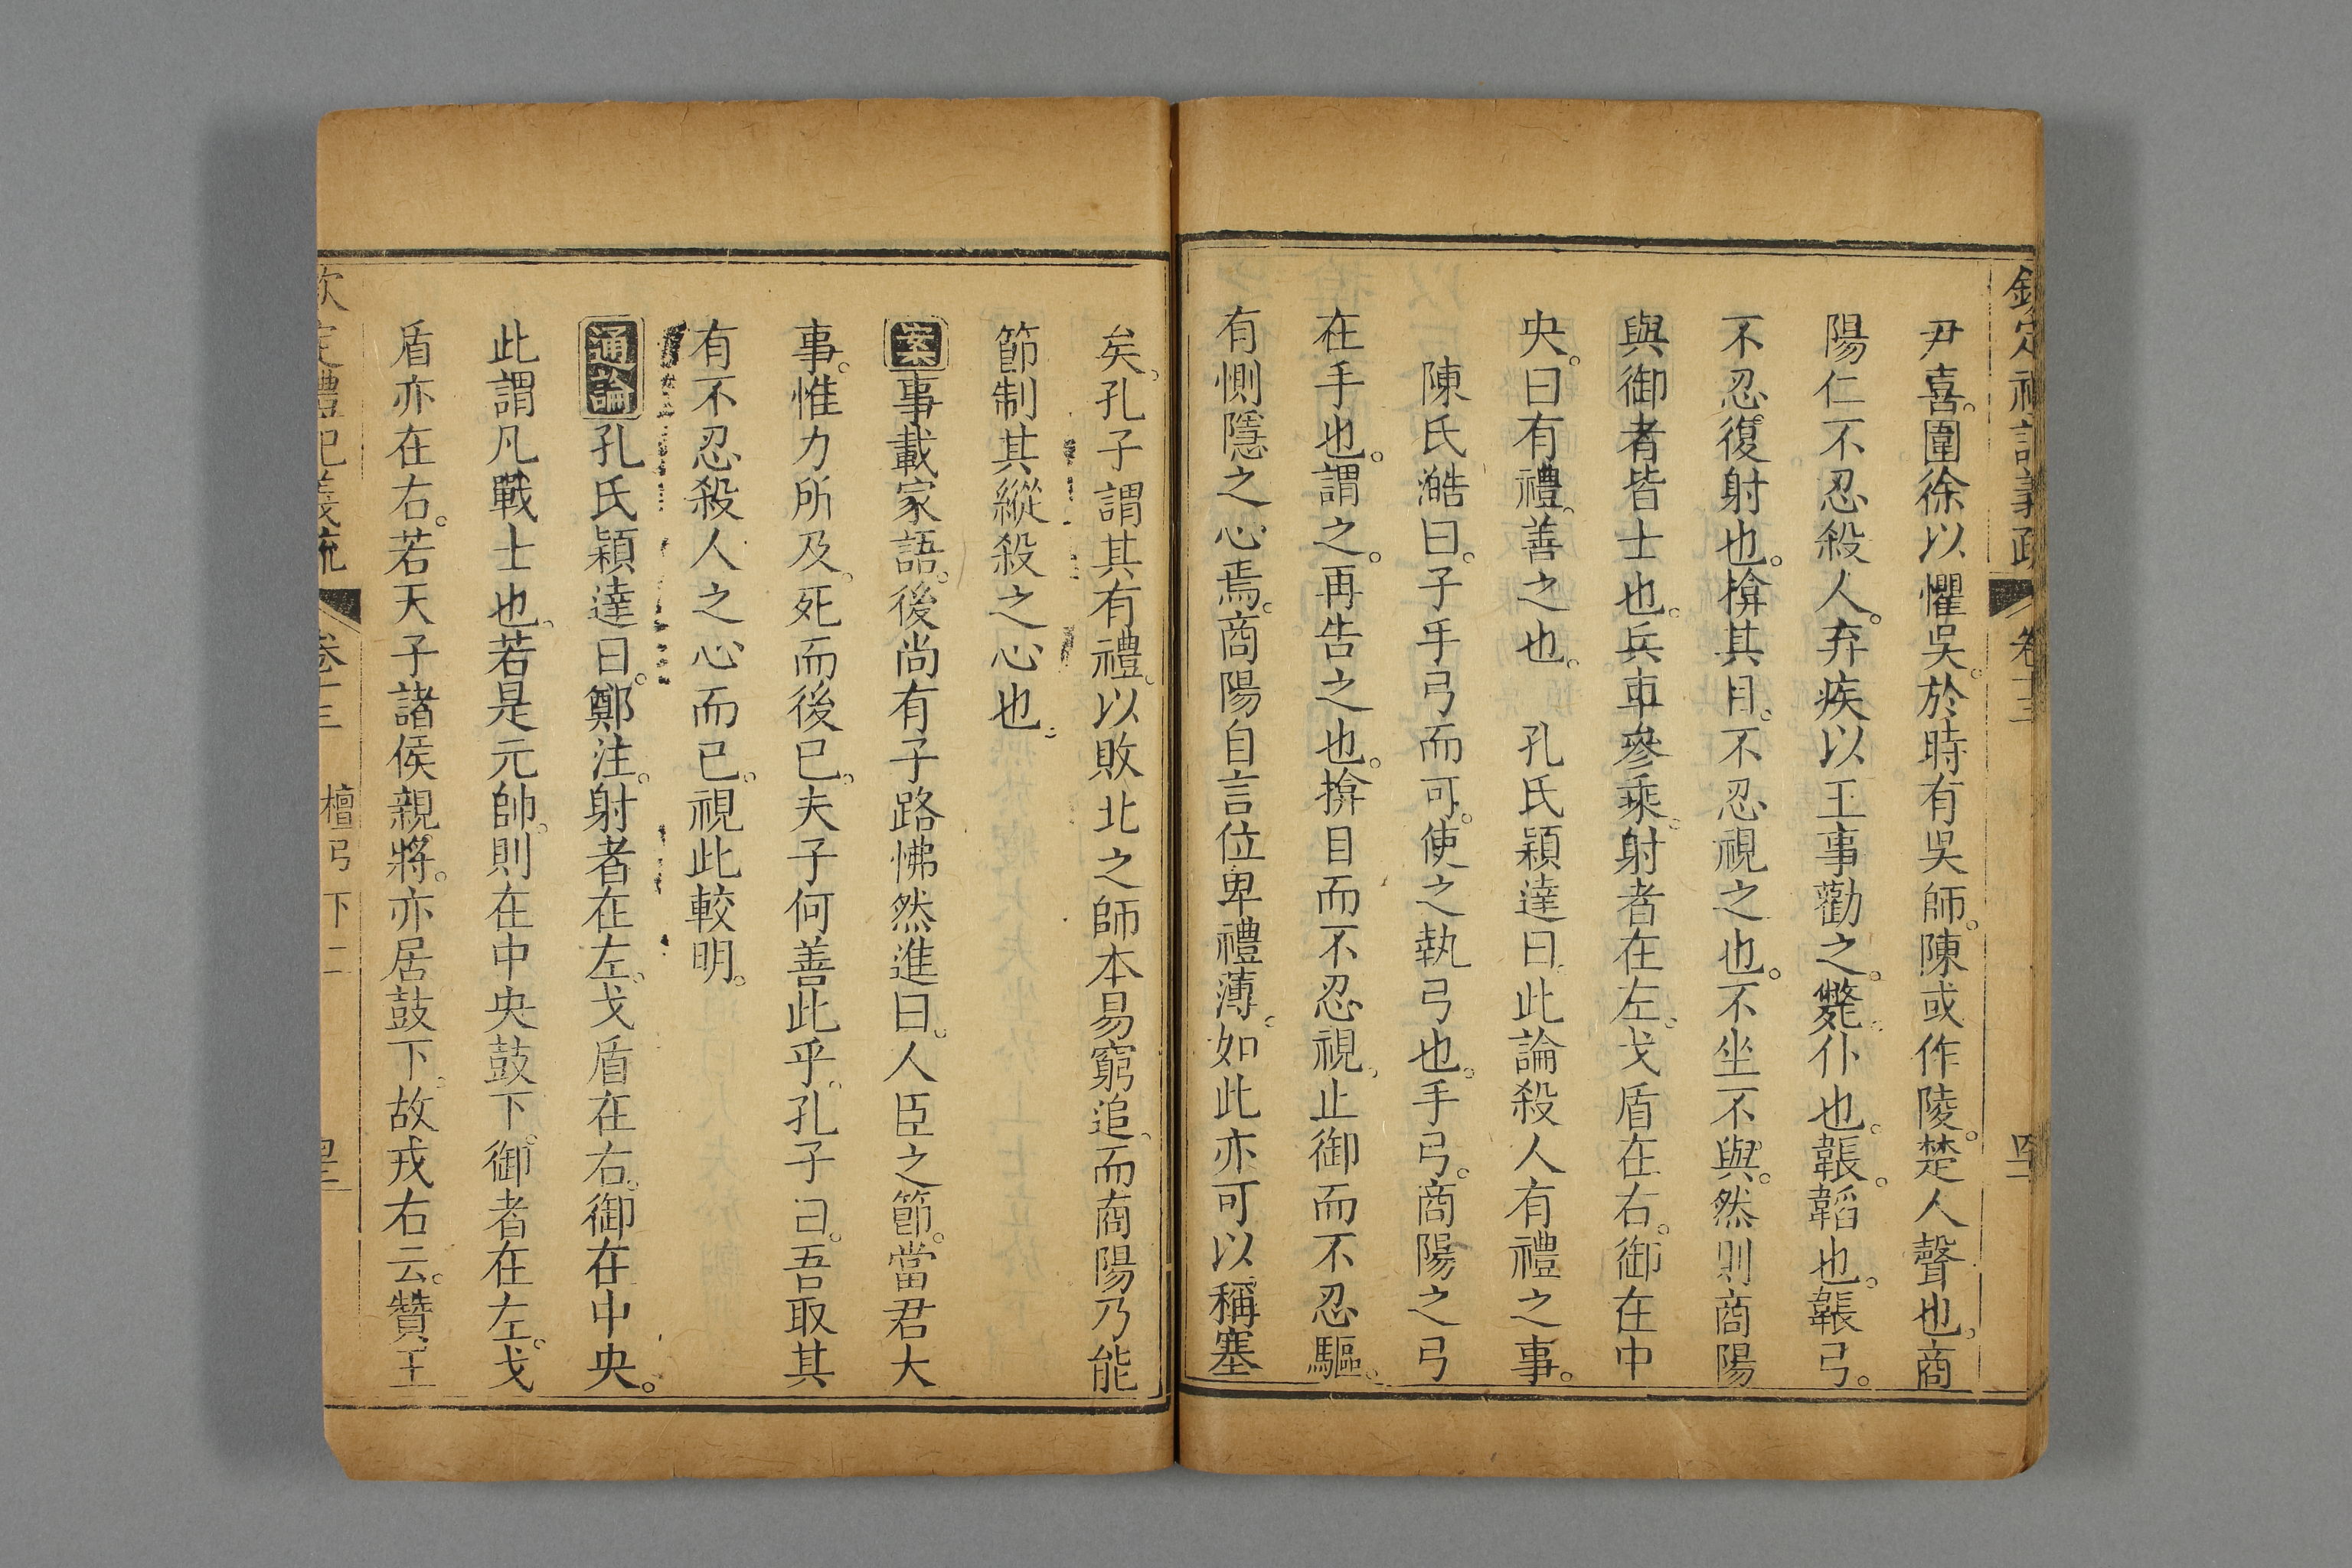 尹喜。圍徐以懼吳。於時有吳師。陳或作陵。楚人聲也。商
陽仁不忍殺人。弃疾以王事勸之。斃。仆也。韔。韜也。韔弓。
不忍復射也。揜其目。不忍視之也。不坐不與。然則商陽
與御者皆士也。兵車參乘。射者在左。戈盾在右。御在中
央。曰有禮。善之也。孔氏穎達曰。此論殺人有禮之事。
陳氏澔曰。子手弓而可。使之執弓也。手弓。商陽之弓
在手也。謂之。再告之也。揜目而不忍視。止御而不忍驅。
有惻隱之心焉。商陽自言位卑禮薄。如此亦可以稱塞
矣。孔子謂其有禮。以敗北之師本易窮追。而商陽乃能
節制其縱殺之心也。
案事載家語。後尚有子路怫然進曰。人臣之節。當君大
事。惟力所及。死而後已。夫子何善此乎。孔子曰。吾取其
有不忍殺人之心而已。視此較明。
通論孔氏穎達曰。鄭注。射者在左。戈盾在右。御在中央。
此謂凡戰士也。若是元帥。則在中央鼓下。御者在左。戈
盾亦在右。若天子諸侯親將。亦居鼓下。故戎右云。贊王
欽定禮記義疏 卷十三 檀弓下二